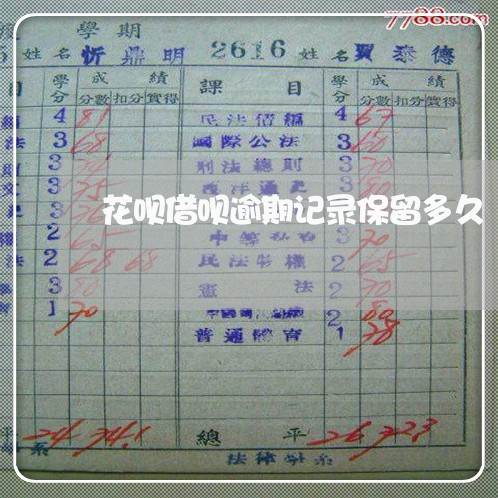 7788.com
學期
姓名 忻鼎明 2616 姓名 賈泰德
目 學分 成績 課目 學分 成績
分數 扣分 實得 分數 扣分 實得
4 81 民法債編 4 67
法 3 68 國際公法 3 60
3 刑法總則 3 70
3 75 西洋通史 3 80
花呗借呗逾期记录保留多久
2 65 3 70
法 2 68 68 民法物權 2 65
3 80 憲法 2 70
1 70 2 80
普通體育 1 78
平 24 74.1 總平 26 72.3
系 法律學系